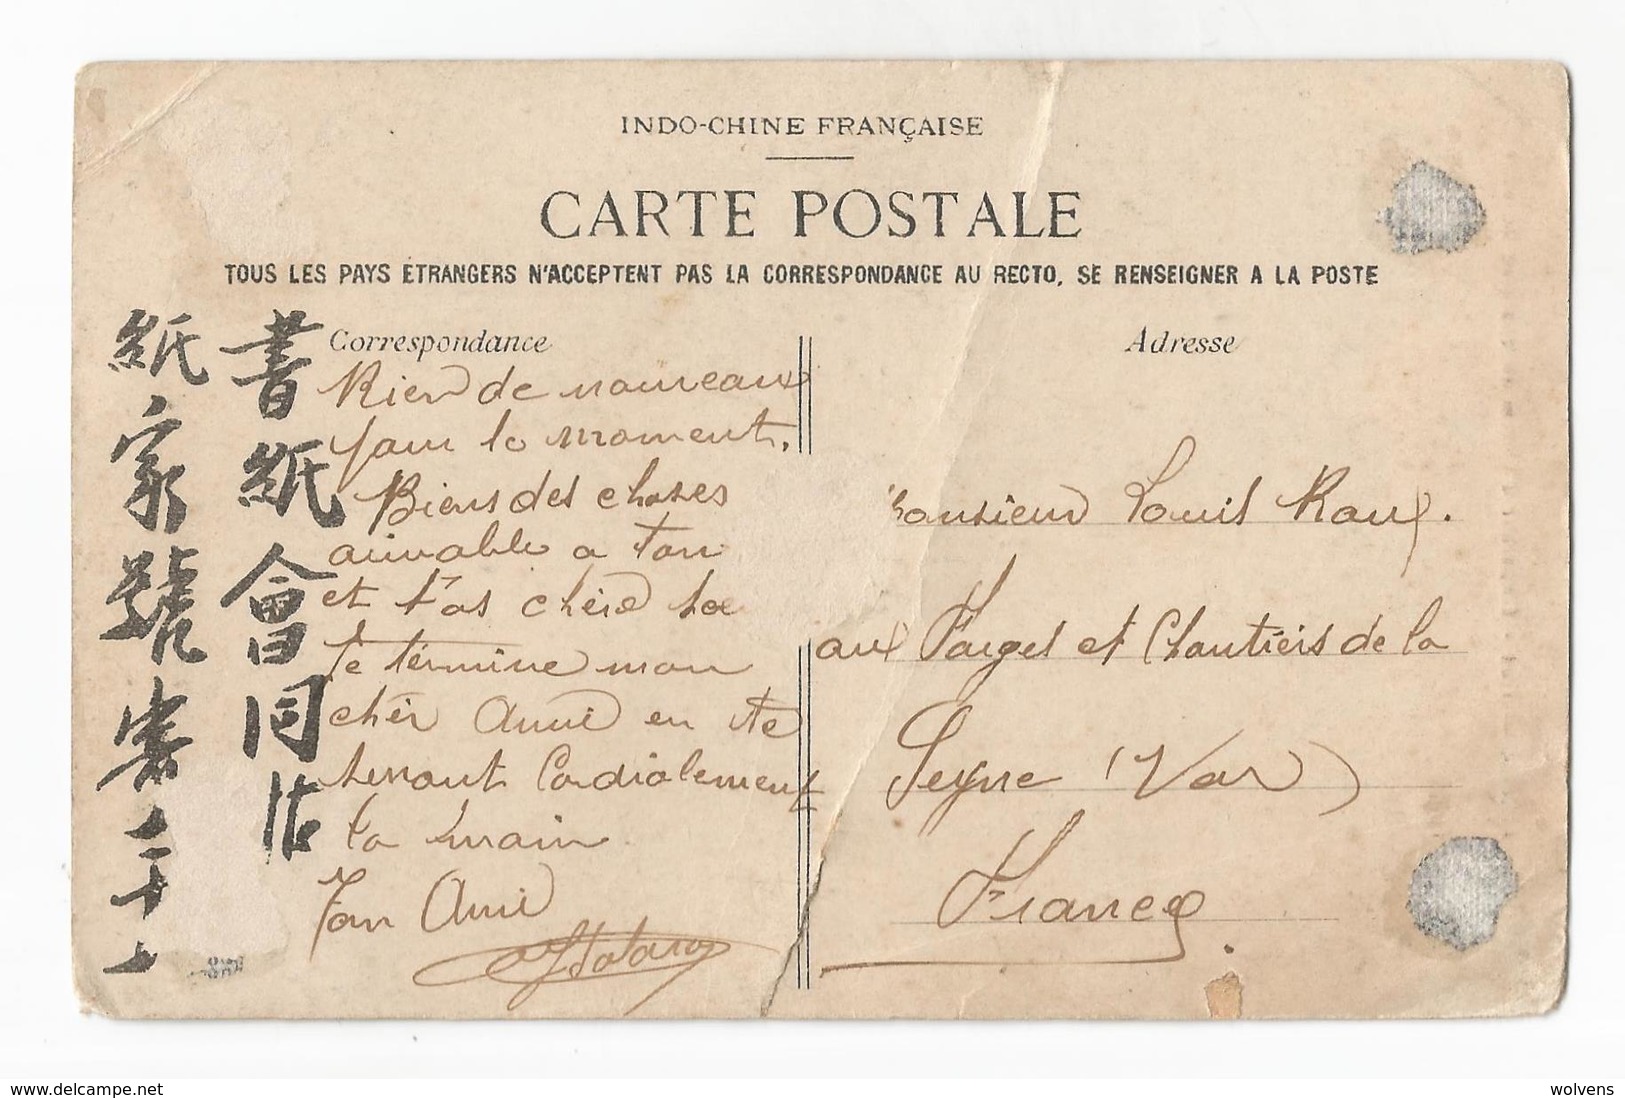 INDO-CHINE FRANÇAISE
CARTE POSTALE
TOUS LES PAYS ÉTRANGERS N'ACCEPTENT PAS LA CORRESPONDANCE AU RECTO, SE RENSEIGNER A LA POSTE
Correspondance
Rien de nouveaux
pour le moment.
Biens des choses
aimable a ton
et t'as chère
Je termine mon
chér Ami en te
serrant Cordialement
la main
Ton Ami
Adresse
Monsieur Louis Roux.
aux Forges et Chantiers de la
Seyne (Var)
France.
書紙會同
紙家號寄
www.delcampe.net
wolvens